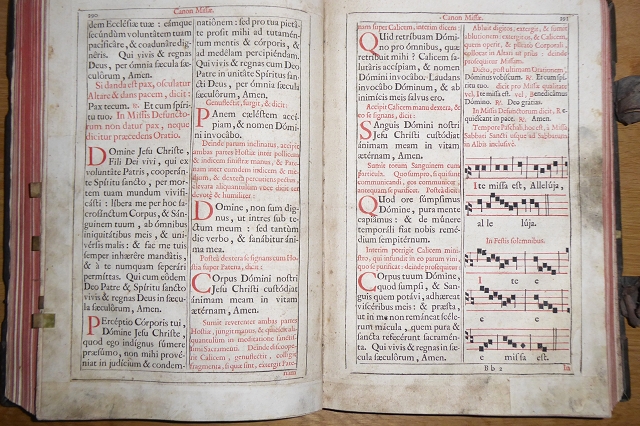 290
Canon Missæ.
dem Ecclesiæ tuæ: eámque
secúndùm voluntátem tuam
pacificáre, & coadunáre dig-
néris. Qui vivis & regnas
Deus, per ómnia sæcula
sæculórum, Amen.
Si danda est pax, osculatur
Altare & dans pacem, dicit:
Pax tecum. ℟. Et cum spíri-
tu tuo. In Missis Defuncto-
rum non datur pax, neque
dicitur præcedens Oratio.
Domine Jesu Christe,
Fili Dei vivi, qui ex
voluntáte Patris, cooperán-
te Spíritu sancto, per mor-
tem tuam mundum vivifi-
cásti: líbera me per hoc sa-
crosánctum Corpus, & Sán-
guinem tuum, ab ómnibus
iniquitátibus meis, & uni-
vérsis malis: & fac me tuis
semper inhærére mandátis,
& à te numquam separári
permíttas. Qui cum eódem
Deo Patre & Spíritu sancto
vivis & regnas Deus in sæcu-
la sæculórum, Amen.
Percéptio Córporis tui,
Dómine Jesu Christe,
quod ego indígnus súmere
præsúmo, non mihi prové-
niat in judícium & condem-
nationem: sed pro tua pietá-
te prosit mihi ad tutamén-
tum mentis & córporis, &
ad medélam percipiéndam.
Qui vivis & regnas cum Deo
Patre in unitáte Spíritus san-
cti Deus, per ómnia sæcula
sæculórum, Amen.
Genuflectit, surgit, & dicit:
Panem cæléstem accí-
piam, & nomen Dómi-
ni invocábo.
Deinde parum inclinatus, accipit
ambas partes Hostiæ inter pollicem
& indicem sinistræ manus, & Pate-
nam inter eumdem indicem & me-
dium, & dextera percutiens pectus,
elevata aliquantulum voce dicit ter
devotè & humiliter:
Domine, non sum dig-
nus, ut intres sub te-
ctum meum: sed tantùm
dic verbo, & sanábitur áni-
ma mea.
Postea dextera se signans cum Ho-
stia super Patena, dicit:
Corpus Dómini nostri
Jesu Christi custódiat
ánimam meam in vitam
ætérnam, Amen.
Sumit reverenter ambas partes
Hostiæ, jungit manus, & quiescit ali-
quantulum in meditatione sanctis-
simi Sacramenti. Deinde discoope-
rit Calicem, genuflectit, colligit
fragmenta, si quæ sint, extergit Pate-
nam
Canon Missæ.
291
nam super Calicem, interim dicens:
Quid retríbuam Dómi-
no pro ómnibus, quæ
retríbuit mihi? Calicem
salutáris accípiam, & nomen
Dómini invocábo. Laudans
invocábo Dóminum, & ab
inimícis meis salvus ero.
Accipit Calicem manu dextera, &
eo se signans, dicit:
Sanguis Dómini nostri
Jesu Christi custódiat
ánimam meam in vitam
ætérnam, Amen.
Sumit totum Sanguinem cum
particula. Quo sumpto, si qui sunt
communicandi, eos communicet
antequam se purificet. Postea dicit:
Quod ore súmpsimus
Dómine, pura mente
capiámus: & de múnere
temporáli fiat nobis remé-
dium sempitérnum.
Interim porrigit Calicem mini-
stro, qui infundit in eo parum vini,
quo se purificat: deinde prosequitur:
Corpus tuum Dómine,
quod sumpsi, & San-
guis quem potávi, adhæreat
viscéribus meis: & præsta,
ut in me non remáneat scéle-
rum mácula, quem pura &
sancta refecérunt sacramén-
ta. Qui vivis & regnas in sæ-
cula sæculórum, Amen.
Abluit digitos, extergit, & sumit
ablutionem: extergit os, & Calicem,
quem operit, & plicato Corporali,
collocat in Altari ut priùs: deinde
prosequitur Missam.
Dicto, post ultimam Orationem,
Dóminus vobíscum. ℟. Et cum spí-
ritu tuo. dicit pro Missæ qualitate
vel, Ite missa est. vel, Benedicámus
Dómino. ℟. Deo grátias.
In Missis Defunctorum dicit, Re-
quiéscant in pace. ℟. Amen.
Tempore Paschali, hoc est, à Missa
Sabbati Sancti usque ad Sabbatum
in Albis inclusivè.
Ite missa est, Allelúja,
al le lúja.
In Festis solemnibus.
I te
e
e missa est.
B b 2
In